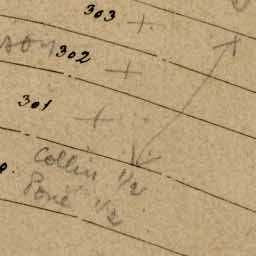 303
302
301
Collin 1/2
Pore 1/2